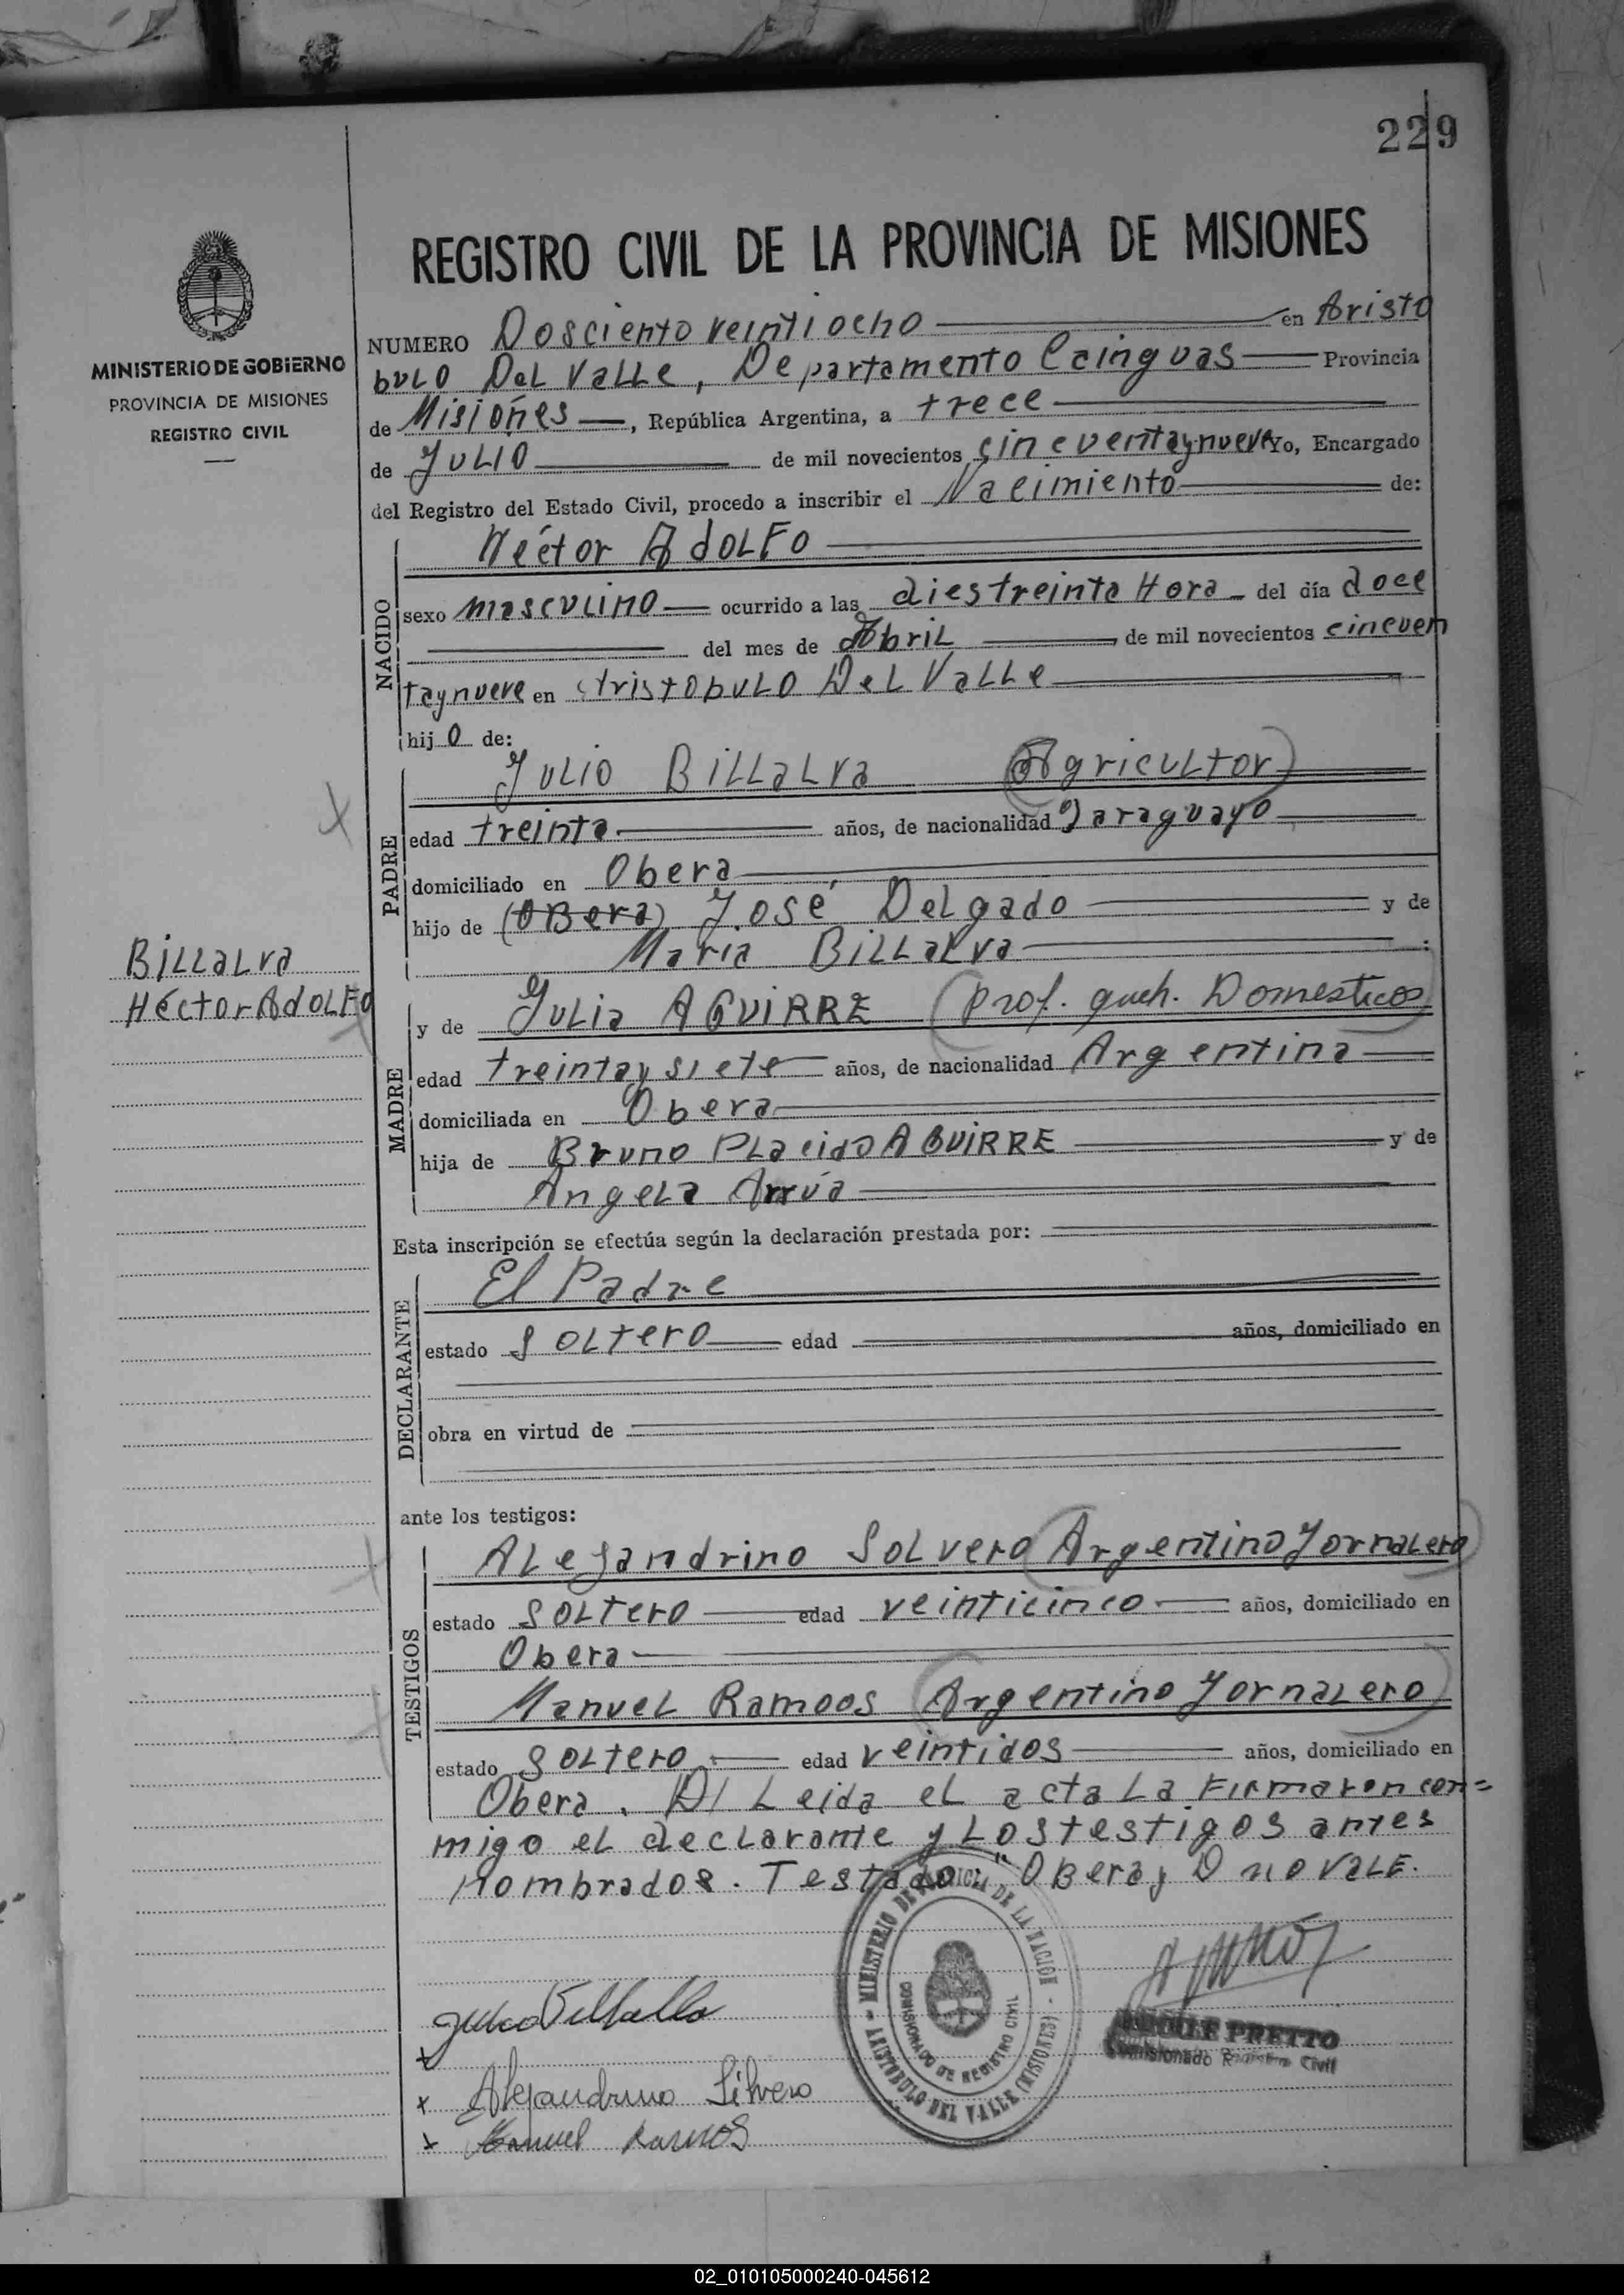 229
MINISTERIO DE GOBIERNO
PROVINCIA DE MISIONES
REGISTRO CIVIL
REGISTRO CIVIL DE LA PROVINCIA DE MISIONES
NUMERO Dosciento veintiocho en Aristo
bulo Del Valle, Departamento Cainguas Provincia
de Misiones, República Argentina, a trece
de Julio de mil novecientos cincuentaynueve Yo, Encargado
del Registro del Estado Civil, procedo a inscribir el Nacimiento de:
NACIDO
Héctor Adolfo
sexo masculino ocurrido a las diestreinta Hora del día doce
del mes de Abril de mil novecientos cincuen
taynueve en Aristobulo Del Valle
hijo de:
PADRE
Julio Billalva (Agricultor)
edad treinta años, de nacionalidad Paraguayo
domiciliado en Obera
hijo de (Obera) José Delgado y de
Maria Billalva :
Billalva
Héctor Adolfo
MADRE
y de Julia AGUIRRE (Prof. queh. Domesticos)
edad treintaysiete años, de nacionalidad Argentina
domiciliada en Obera
hija de Bruno Placido AGUIRRE y de
Angela Arrúa
Esta inscripción se efectúa según la declaración prestada por:
DECLARANTE
El Padre
estado Soltero edad años, domiciliado en
obra en virtud de
ante los testigos:
TESTIGOS
Alejandrino Solvero (Argentino Jornalero)
estado Soltero edad veinticinco años, domiciliado en
Obera
Manuel Ramoos (Argentino Jornalero)
estado Soltero edad veintidos años, domiciliado en
Obera. Dl Leida el acta la firmaron con=
migo el declarante y los testigos antes
nombrados. Testado: "Obera, D no vale.
MINISTERIO DE JUSTICIA DE LA NACIÓN
COMISIONADO DE REGISTRO CIVIL
ARISTOBULO DEL VALLE (MISIONES)
Julio Villalba
PRETTO
Comisionado Registro Civil
x Alejandrino Silvero
x Manuel Ramos
02_010105000240-045612